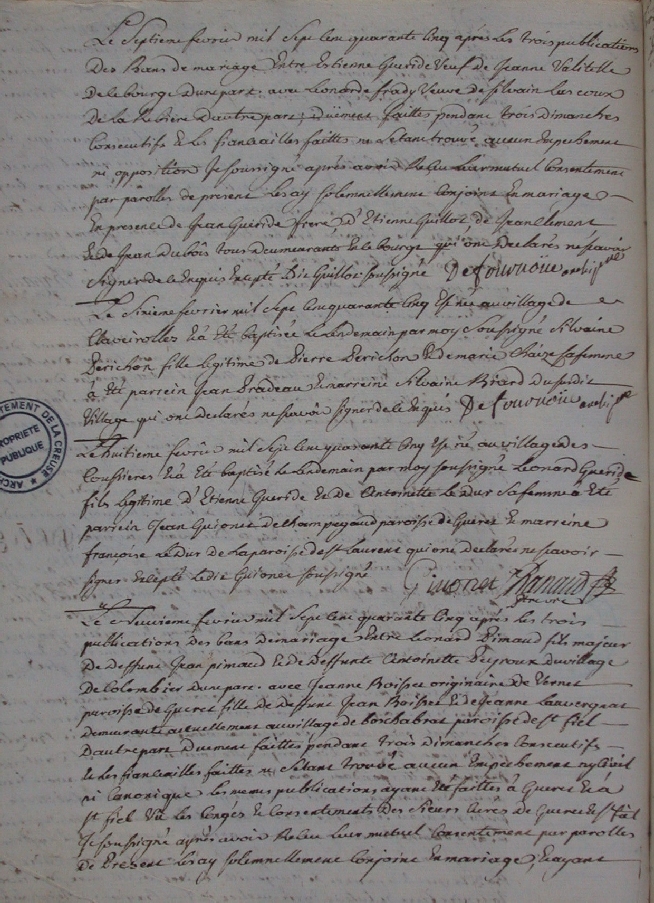 Le Septieme fevrier mil Sept Cent quarante Cinq après Les trois publications
Des Bans de mariage Entre Estienne Gueride Veuf de Jeanne Valitelle
De le bourge Dune part. avec Leonarde frady Veuve de Silvain Las coux
De la Dautre part; Duëment faittes pendant trois Dimanches
Consecutifs & Les fiancailles faittes ne Setant trouvé aucun Empechement
ni opposition Je soussigné après avoir Receu Leur mutuel Consentement
par parolles de present Lesay Solemnellement Conjoint En mariage
En presence de Jean Gueride frere D'Etienne Guillot de Jean Clement
& de Jean Dubois tous Demeurants & le bourge qui ont Declarés ne scavoir
Signer de le Enquis Excepté Die Guillot soussigné
Le Sixieme fevrier mil Sept Cent quarante Cinq Est née au village de
Clavérolles & a Eté baptisée Le Lendemain par moy Soussigné Silvaine
Derichon fille Legitime de Pierre Derichon & de marie Chaize sa femme
à Eté parrein Jean Pradeau & marreine Silvaine Briard Dususdit
Village qui ont declarés ne scavoir signer de le Enquis
Le huitieme fevrier mil Sept Cent quarante Cinq Est né au village des
Coussieres & a Eté baptisé Le Lendemain par moy soussigné Leonard Gueride
fils Legitime d'Etienne Gueride & de Antoinette Le Dur Sa femme à Eté
parrein Jean Guionet de Champegaud paroisse de Gueret & marreine
francoise Le Dur de La paroisse de St Laurent qui ont declarés ne scavoir
signer Excepté Ledit Guionet soussigné Guionet
Le Neuvieme fevrier mil Sept Cent quarante Cinq après les trois
publications des bans demariage Entre Leonard Pimaud fils majeur
De deffunt Jean pimaud & de Deffunte Antoinette Peyroux du village
De Colombier Dune part. avec Jeanne Boisset originaire De Vernet
paroisse de Gueret fille de Deffunt Jean Boisset & de Jeanne Lauvergeat
Demeurante actuellement au village de bois chabrat paroisse de St fiel
Dautre part Duement faittes pendant trois Dimanches Consecutifs
& les fiancailles faittes ne Setant trouvé aucun Empechement ny Civil
ni Canonique les memes publications ayant été faittes à Gueret & à
St fiel Vû les Congés & Consentements Des Sieurs Curés de Gueret & St fiel
Je soussigné après avoir Receu leur mutuel Consentement par parolles
De Present Lesay Solemnellement Conjoint En mariage, & ayant
PROPRIETE
PUBLIQUE